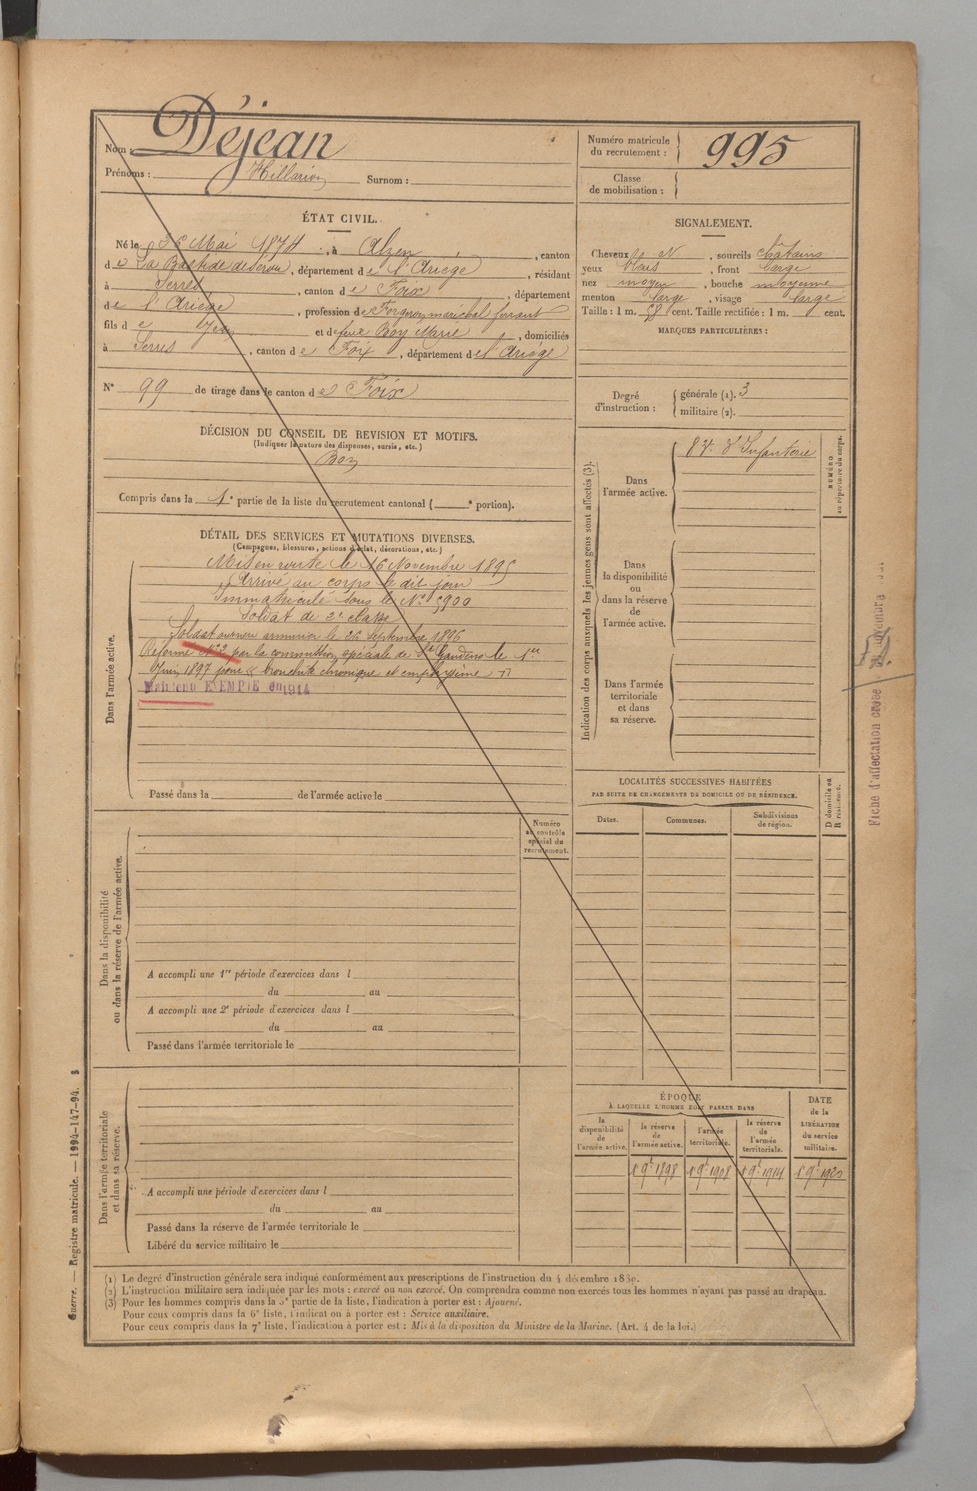 Nom : Déjean
Prénoms : Hillarion Surnom :
Numéro matricule du recrutement : 995
Classe de mobilisation :
ÉTAT CIVIL.
Né le Mai 1874, à Alzen, canton
de La Bastide de Serou, département de l'Ariège, résidant
à Serres, canton de Foix, département
de l'Ariège, profession de Forgeron maréchal ferrant
fils de Jean et de feue Boy Marie, domiciliés
à Serres, canton de Foix, département de l'Ariège
N° 99 de tirage dans le canton de Foix
DÉCISION DU CONSEIL DE REVISION ET MOTIFS.
(Indiquer la nature des dispenses, sursis, etc.)
Bon
Compris dans la 1e partie de la liste du recrutement cantonal ( e portion).
DÉTAIL DES SERVICES ET MUTATIONS DIVERSES.
(Campagnes, blessures, actions d'éclat, décorations, etc.)
Dans l'armée active.
Mis en route le 16 Novembre 1895
Arrivé au corps le dit jour
Immatriculé sous le N° 5900
Soldat de 2e classe
Soldat ouvrier armurier le 26 Septembre 1896
Réformé N° 2 par la commission spéciale de St Gaudens le 1er
Juin 1897 pour bronchite chronique et emphysème
Maintenu EXEMPTÉ en 1914
Passé dans la de l'armée active le
Dans la disponibilité
ou dans la réserve de l'armée active.
Numéro
au contrôle
spécial du
recrutement.
A accompli une 1re période d'exercices dans l
du au
A accompli une 2e période d'exercices dans l
du au
Passé dans l'armée territoriale le
Dans l'armée territoriale
et dans sa réserve.
A accompli une période d'exercices dans l
du au
Passé dans la réserve de l'armée territoriale le
Libéré du service militaire le
SIGNALEMENT.
Cheveux N, sourcils châtains
yeux, front large
nez moyen, bouche moyenne
menton large, visage large
Taille : 1 m. 58 cent. Taille rectifiée : 1 m. cent.
MARQUES PARTICULIÈRES :
Degré d'instruction :
générale (1). 3
militaire (2).
Indication des corps auxquels les jeunes gens sont affectés (3).
Dans
l'armée active.
83e d'Infanterie
NUMÉRO
au répertoire du corps.
Dans
la disponibilité
ou
dans la réserve
de
l'armée active.
Dans l'armée
territoriale
et dans
sa réserve.
LOCALITÉS SUCCESSIVES HABITÉES
PAR SUITE DE CHANGEMENTS DE DOMICILE OU DE RÉSIDENCE.
Dates. Communes. Subdivisions de région.
D domicile ou
R résidence.
ÉPOQUE
À LAQUELLE L'HOMME DOIT PASSER DANS
DATE
de la
LIBÉRATION
du service
militaire.
la disponibilité de l'armée active.
la réserve de l'armée active.
l'armée territoriale.
la réserve de l'armée territoriale.
1 9e 1898 1 9e 1908 1 9e 1914 1 9e 1920
(1) Le degré d'instruction générale sera indiqué conformément aux prescriptions de l'instruction du 4 décembre 1889.
(2) L'instruction militaire sera indiquée par les mots : exercé ou non exercé. On comprendra comme non exercés tous les hommes n'ayant pas passé au drapeau.
(3) Pour les hommes compris dans la 5e partie de la liste, l'indication à porter est : Ajourné.
Pour ceux compris dans la 6e liste, l'indication à porter est : Service auxiliaire.
Pour ceux compris dans la 7e liste, l'indication à porter est : Mis à la disposition du Ministre de la Marine. (Art. 4 de la loi.)
Guerre. — Registre matricule. — 1994-147-94.
Fiche d'affectation créée